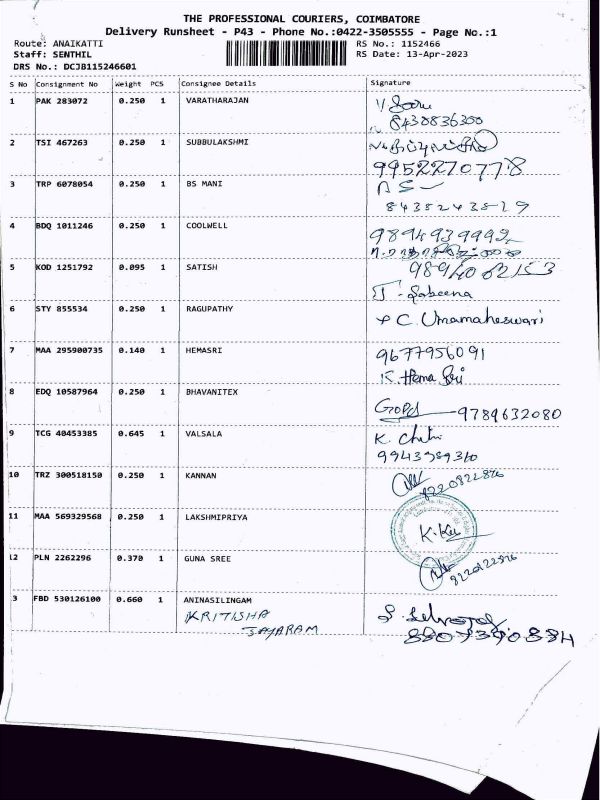 THE PROFESSIONAL COURIERS, COIMBATORE
Delivery Runsheet - P43 - Phone No.:0422-3505555 - Page No.:1
Route: ANAIKATTI RS No.: 1152466
Staff: SENTHIL RS Date: 13-Apr-2023
DRS No.: DCJB115246601
S No Consignment No Weight PCS Consignee Details Signature
1 PAK 283072 0.250 1 VARATHARAJAN
8430836300
2 TSI 467263 0.250 1 SUBBULAKSHMI
9952270778
3 TRP 6078054 0.250 1 BS MANI
8435243519
4 BDQ 1011246 0.250 1 COOLWELL
5 KOD 1251792 0.095 1 SATISH
T. Sabeena
6 STY 855534 0.250 1 RAGUPATHY C. Umamaheswari
7 MAA 295900735 0.140 1 HEMASRI 9677956091
K. Hema
8 EDQ 10587964 0.250 1 BHAVANITEX
9789632080
9 TCG 40453385 0.645 1 VALSALA K.
10 TRZ 300518150 0.250 1 KANNAN
11 MAA 569329568 0.250 1 LAKSHMIPRIYA
12 PLN 2262296 0.370 1 GUNA SREE
3 FBD 530126100 0.660 1 ANINASILINGAM
KRITISHA
JAYARAM